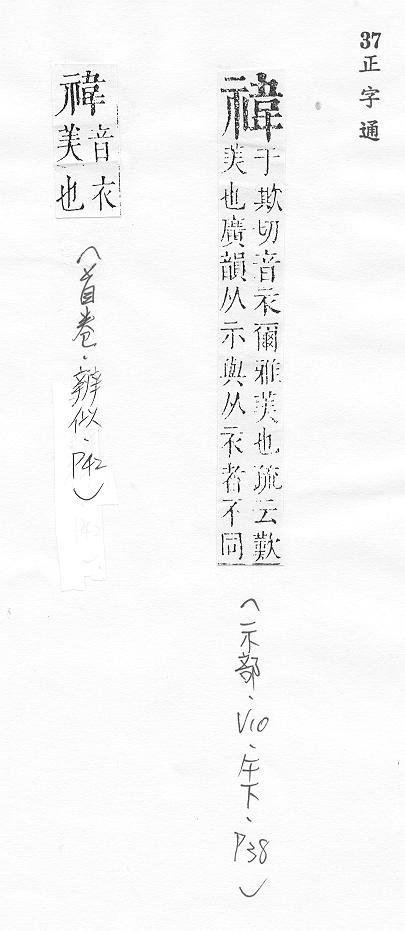 37正字通
禕
于欺切音衣爾雅美也疏云歎
美也廣韻从示與从衣者不同
(示部、V10、午下、P38)
禕音衣
美也
(首卷、辨似、P42)